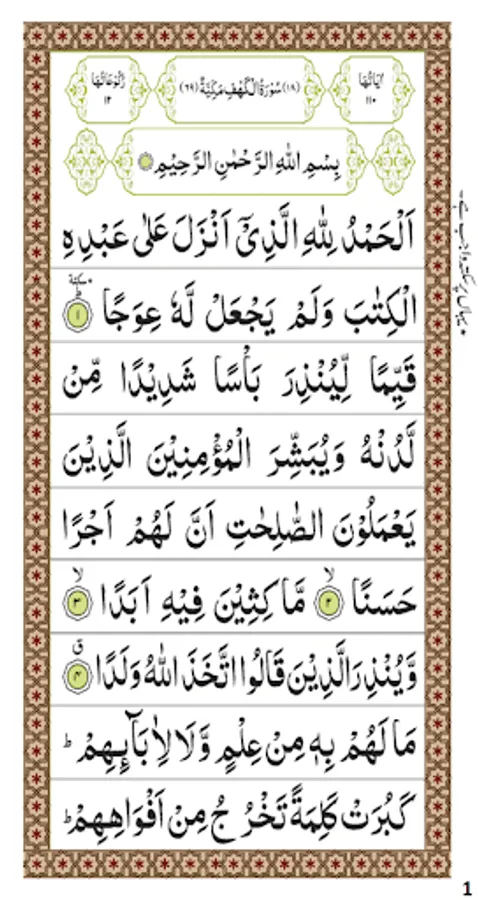 اٰیَاتُهَا ۱۱۰
(۱۸) سُوْرَةُ الْكَهْفِ مَكِّیَّةٌ (۶۹)
رُكُوْعَاتُهَا ۱۲
بِسْمِ اللّٰهِ الرَّحْمٰنِ الرَّحِیْمِ
اَلْحَمْدُ لِلّٰهِ الَّذِیْۤ اَنْزَلَ عَلٰى عَبْدِهِ
الْكِتٰبَ وَلَمْ یَجْعَلْ لَّهٗ عِوَجًا ؕ سكتة ۱
قَیِّمًا لِّیُنْذِرَ بَاْسًا شَدِیْدًا مِّنْ
لَّدُنْهُ وَیُبَشِّرَ الْمُؤْمِنِیْنَ الَّذِیْنَ
یَعْمَلُوْنَ الصّٰلِحٰتِ اَنَّ لَهُمْ اَجْرًا
حَسَنًا ۙ ۲ مَّاكِثِیْنَ فِیْهِ اَبَدًا ۙ ۳
وَّیُنْذِرَ الَّذِیْنَ قَالُوا اتَّخَذَ اللّٰهُ وَلَدًا ق ۴
مَا لَهُمْ بِهٖ مِنْ عِلْمٍ وَّلَا لِاٰبَآئِهِمْ ؕ
كَبُرَتْ كَلِمَةً تَخْرُجُ مِنْ اَفْوَاهِهِمْ ؕ
1